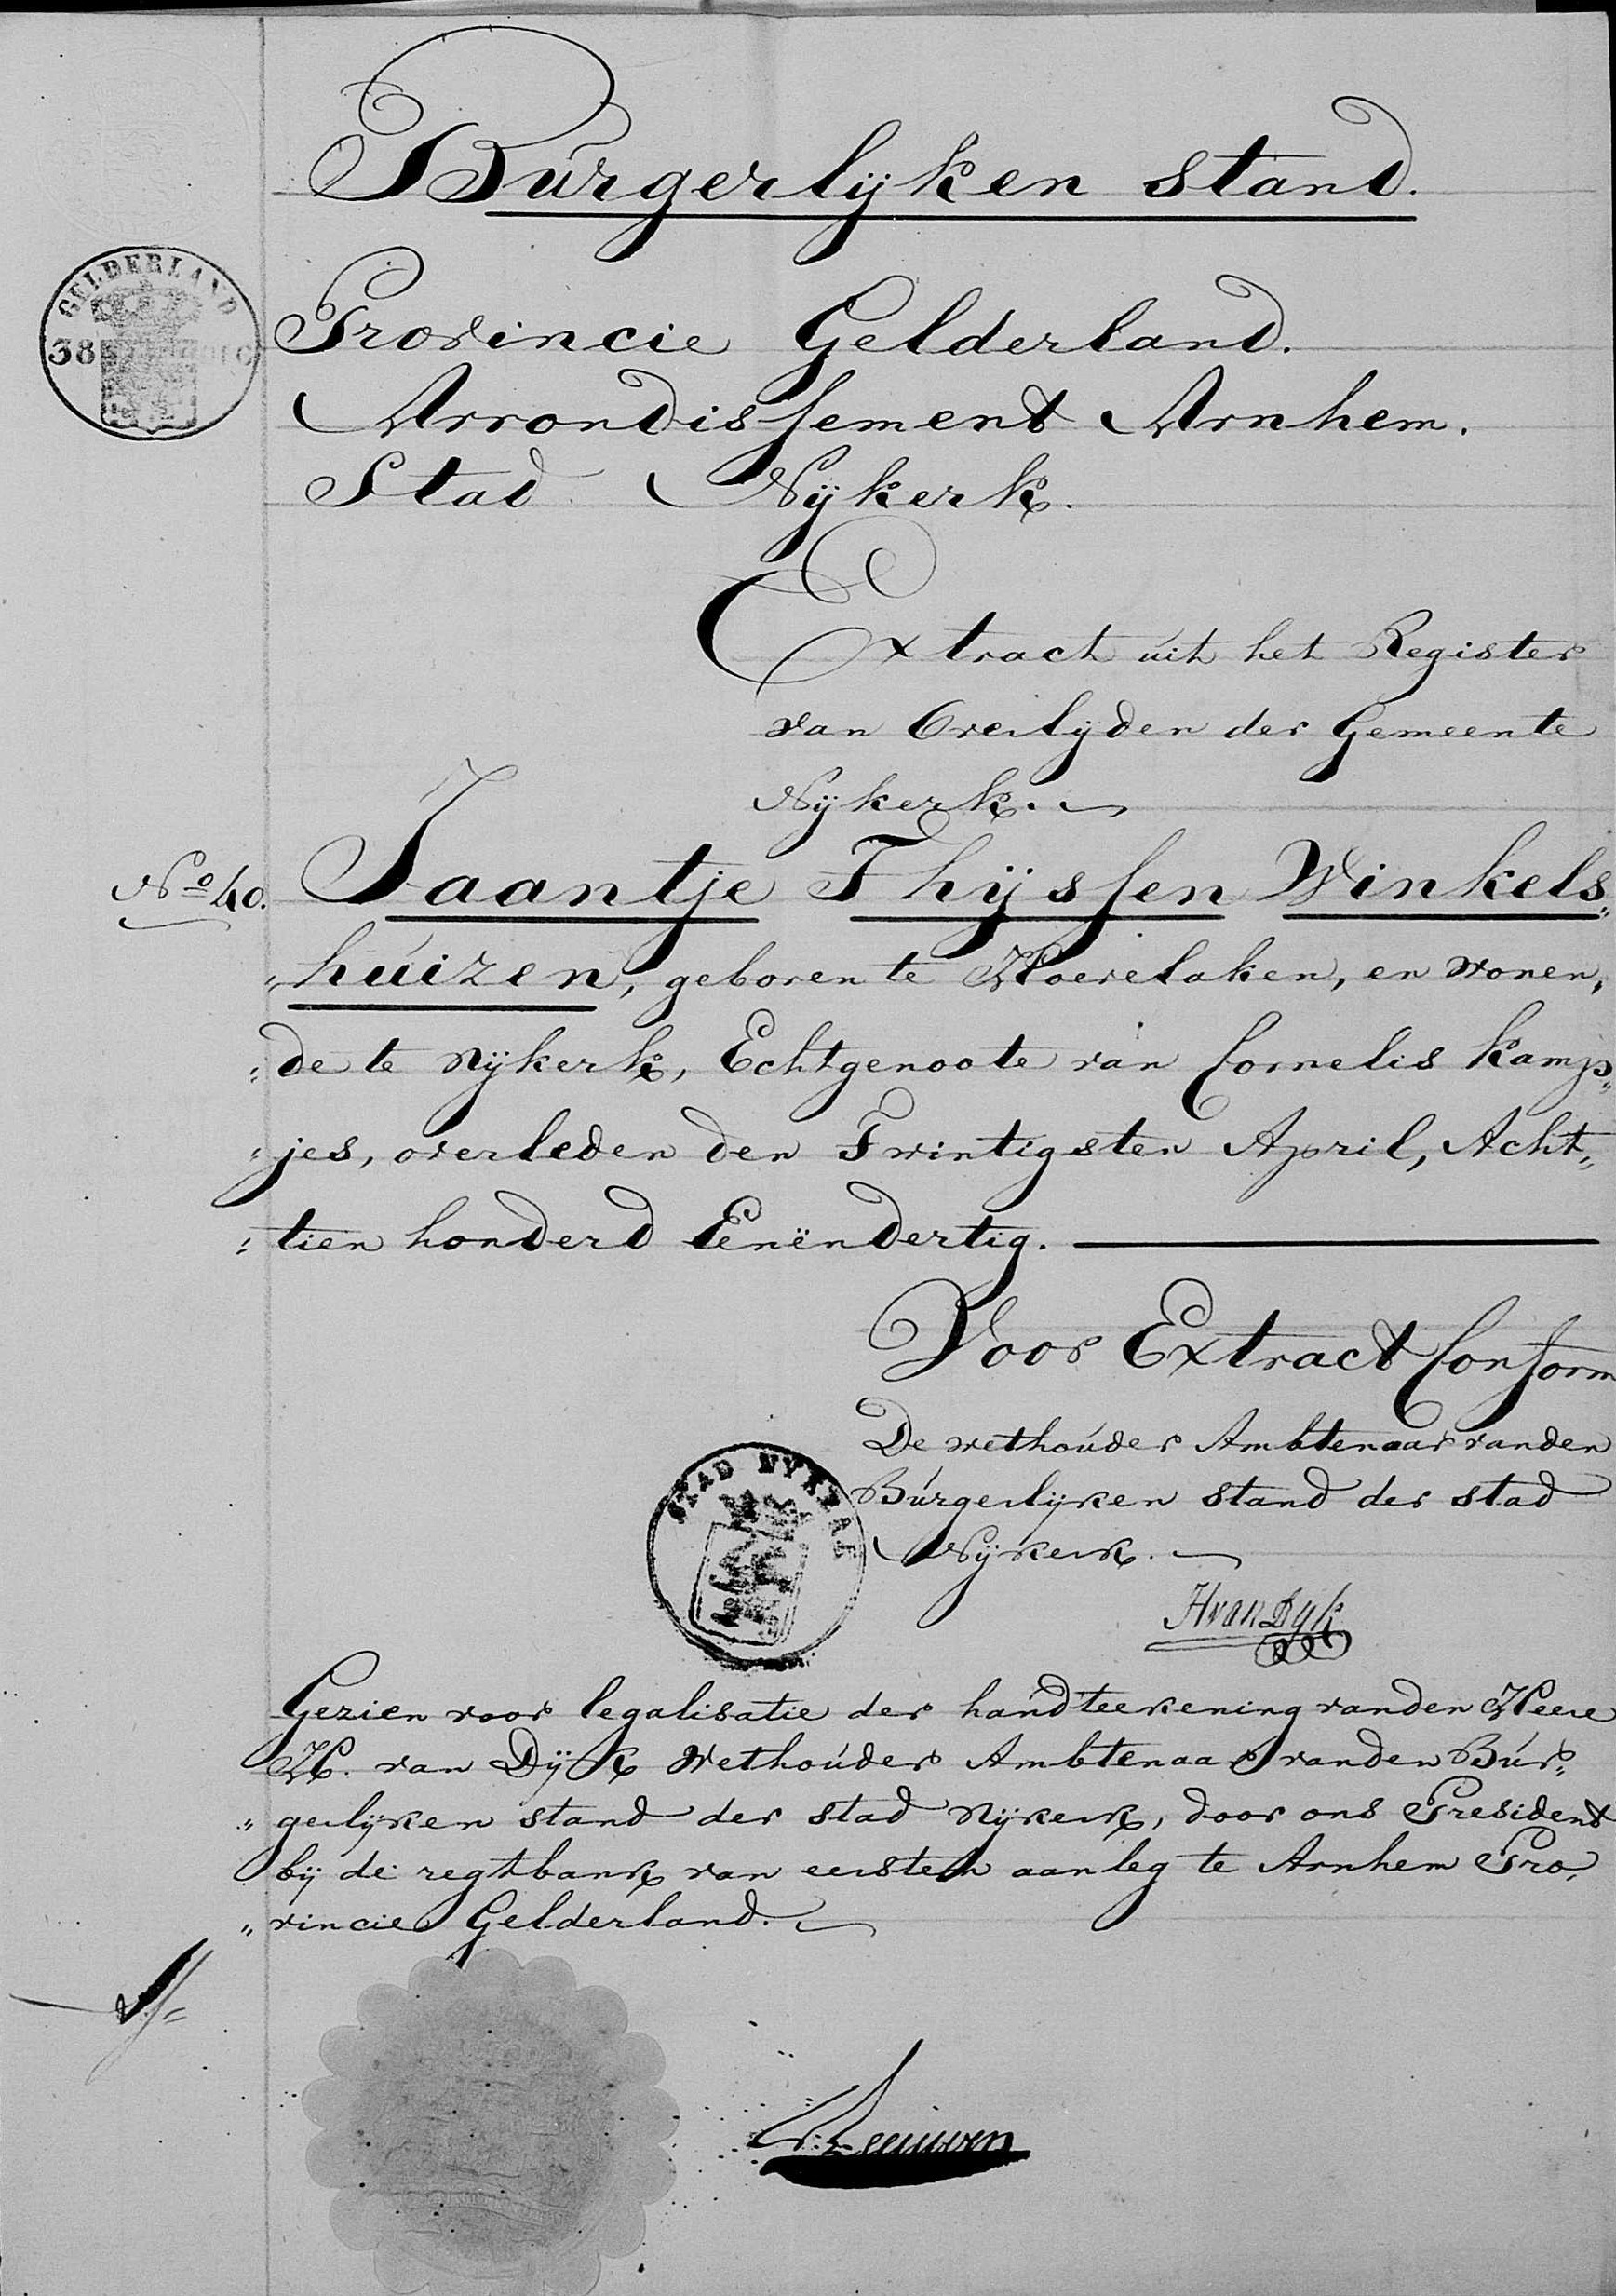 Burgerlijken stand.
GELDERLAND
38
Provincie Gelderland.
Arrondissement Arnhem.
Stad Nijkerk.
Extract uit het Register
van Overlijden der Gemeente
Nijkerk.
No 40. Jaantje Thijssen Winkels„
„huizen, geboren te Hoevelaken, en wonen„
„de te Nijkerk, Echtgenoote van Cornelis Kamp„
„jes, overleden den Twintigsten April, Acht„
„tien honderd Eenëndertig.
Voor Extract Conform
De wethouder Ambtenaar van den
Burgerlijken stand der stad
Nijkerk.
STAD NYKERK
H van Dyk
Gezien voor legalisatie der handteekening van den Heere
H. van Dijk Wethouder Ambtenaar van den Bur„
„gerlijken stand der stad Nijkerk, door ons President
bij de regtbank van eersten aanleg te Arnhem Pro„
„vincie Gelderland.